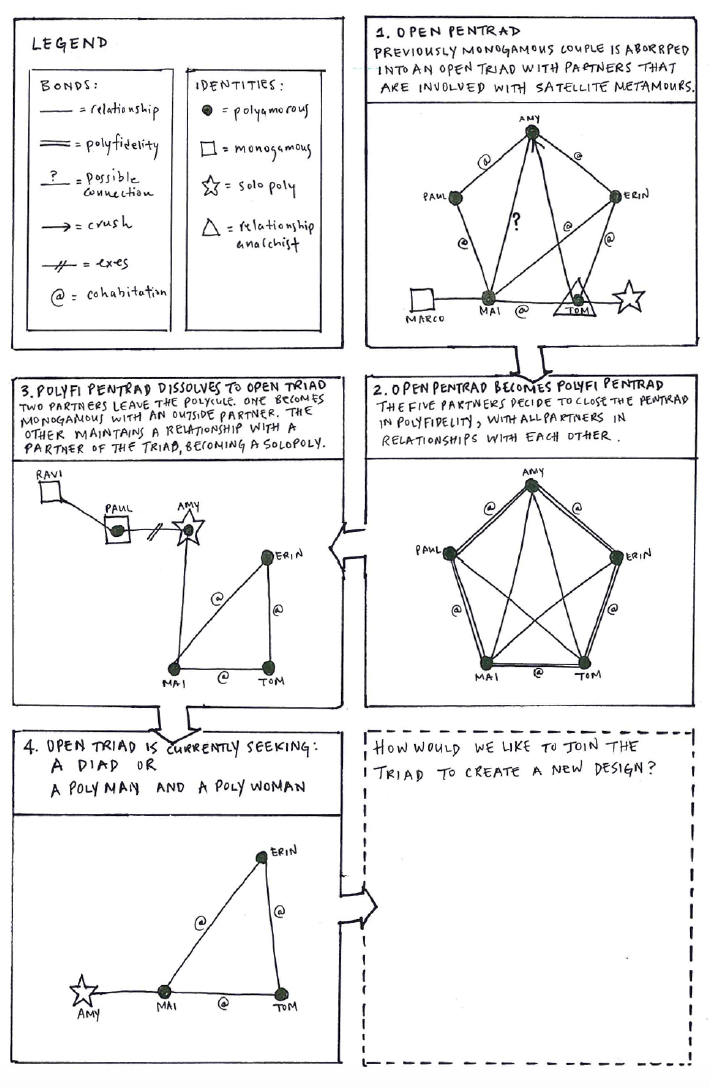 LEGEND
BONDS:
= relationship
= polyfidelity
? = possible
connection
= crush
= exes
@ = cohabitation
IDENTITIES:
= polyamorous
= monogamous
= solo poly
= relationship
anarchist
1. OPEN PENTRAD
PREVIOUSLY MONOGAMOUS COUPLE IS ABORRPED
INTO AN OPEN TRIAD WITH PARTNERS THAT
ARE INVOLVED WITH SATELLITE METAMOURS.
AMY
@ @
PAUL ERIN
@ ? @ @
MARCO MAI @ TOM
2. OPEN PENTRAD BECOMES POLYFI PENTRAD
THE FIVE PARTNERS DECIDE TO CLOSE THE PENTRAD
IN POLYFIDELITY, WITH ALL PARTNERS IN
RELATIONSHIPS WITH EACH OTHER.
AMY
@ @
PAUL ERIN
@ @
MAI @ TOM
3. POLYFI PENTRAD DISSOLVES TO OPEN TRIAD
TWO PARTNERS LEAVE THE POLYCULE. ONE BECOMES
MONOGAMOUS WITH AN OUTSIDE PARTNER. THE
OTHER MAINTAINS A RELATIONSHIP WITH A
PARTNER OF THE TRIAD, BECOMING A SOLOPOLY.
RAVI
PAUL AMY
ERIN
@ @
MAI @ TOM
4. OPEN TRIAD IS CURRENTLY SEEKING:
A DIAD OR
A POLY MAN AND A POLY WOMAN
ERIN
@ @
AMY MAI @ TOM
HOW WOULD WE LIKE TO JOIN THE
TRIAD TO CREATE A NEW DESIGN?